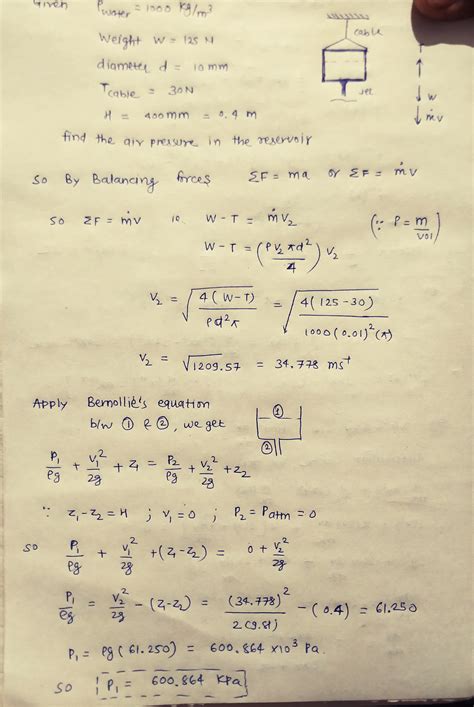 Given ρwater = 1000 kg/m³
cable
Weight W = 125 N
diameter d = 10 mm
Tcable = 30N
Jet
W
H = 400mm = 0.4 m
ṁv
find the air pressure in the reservoir
So By Balancing forces ΣF = ma or ΣF = ṁv
So ΣF = ṁv ie. W - T = ṁV₂ (∵ ρ = m/vol)
W - T = (ρV₂ πd²/4) V₂
V₂ = √(4(W-T)/ρd²π) = √(4(125-30)/1000(0.01)²(π))
V₂ = √1209.57 = 34.778 ms⁻¹
Apply Bernollie's equation
b/w ① & ②, we get
①
②
P₁/ρg + V₁²/2g + z₁ = P₂/ρg + V₂²/2g + z₂
∵ z₁-z₂ = H ; v₁ = 0 ; P₂ = Patm = 0
So P₁/ρg + V₁²/2g + (z₁-z₂) = 0 + V₂²/2g
P₁/ρg = V₂²/2g - (z₁-z₂) = (34.778)²/2(9.81) - (0.4) = 61.250
P₁ = ρg(61.250) = 600.864 ×10³ Pa.
So P₁ = 600.864 KPa